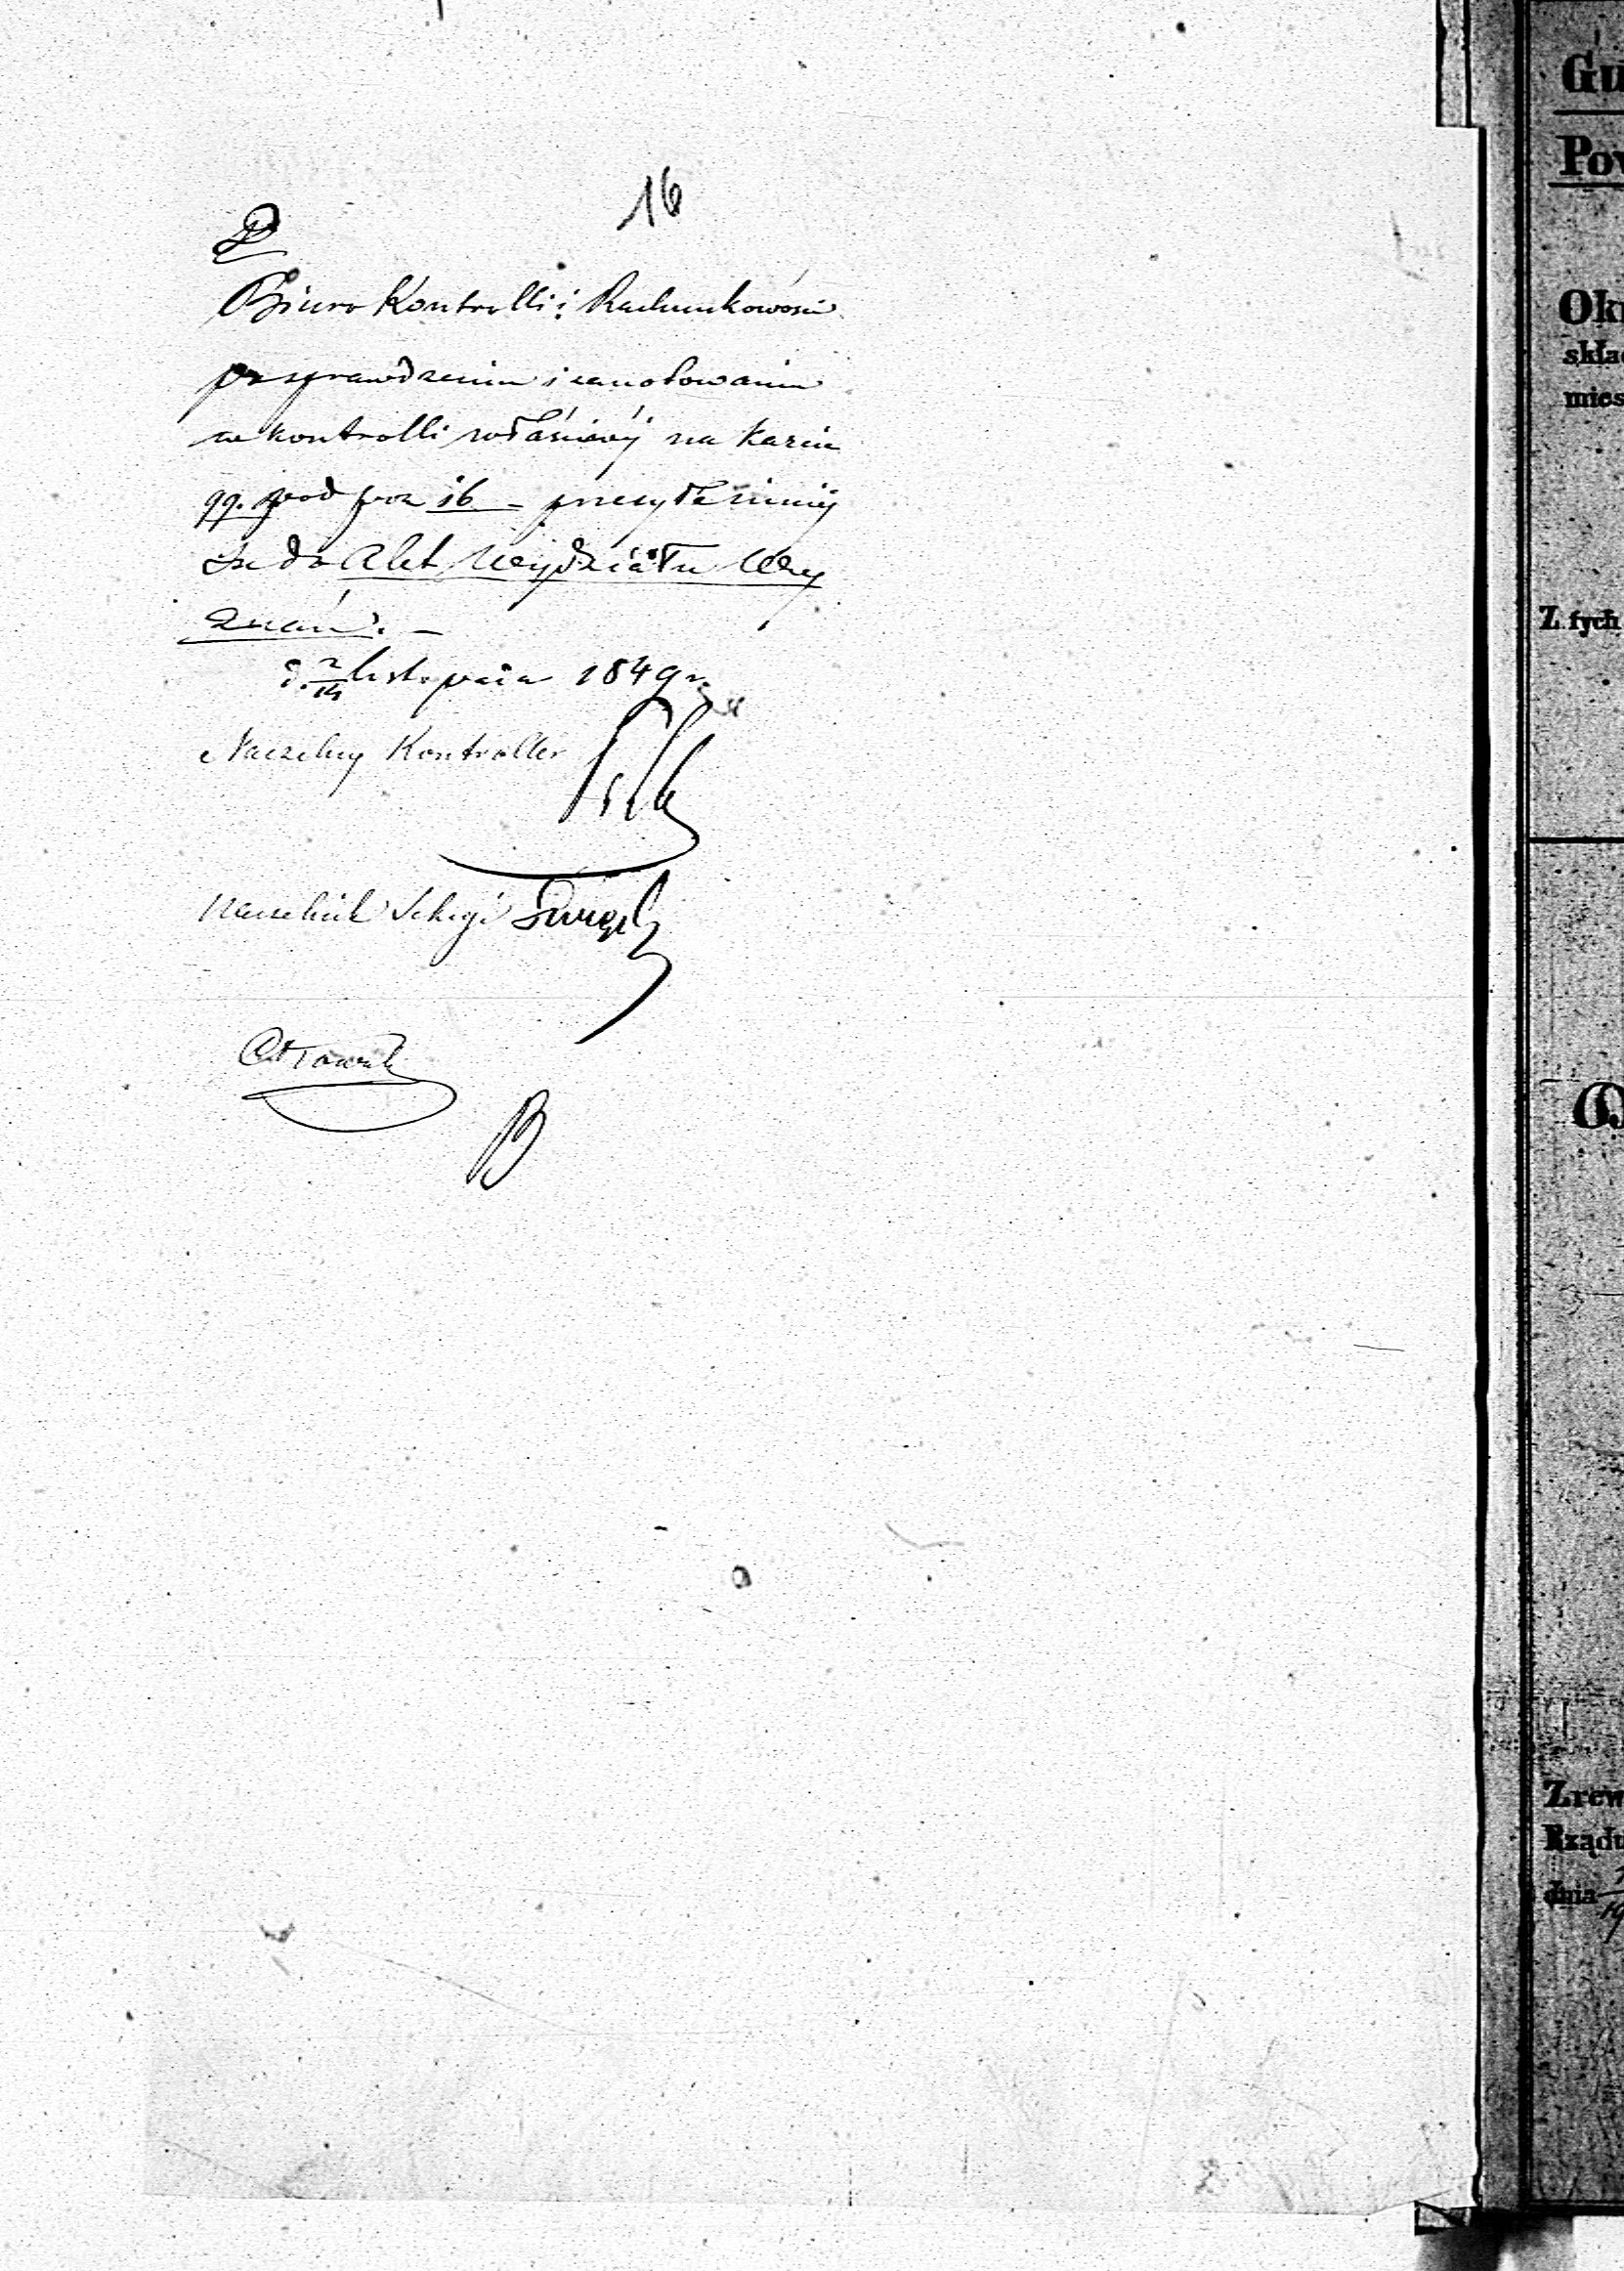 16
Biuro Kontrolli i Rachunkowości
po sprawdzeniu i zanotowaniu
w kontrolli właściwéj na karcie
99. pod poz 16 – przesyła niniéj
sze do Akt Wydziału Wy
znań. –
d. 2/14 Listopada 1849 r.
Naczelny Kontroller
Naczelnik Sekcyi
B
Gu
Pow
Okr
skła
mies
Z tych
Zrew
Rządu
dnia